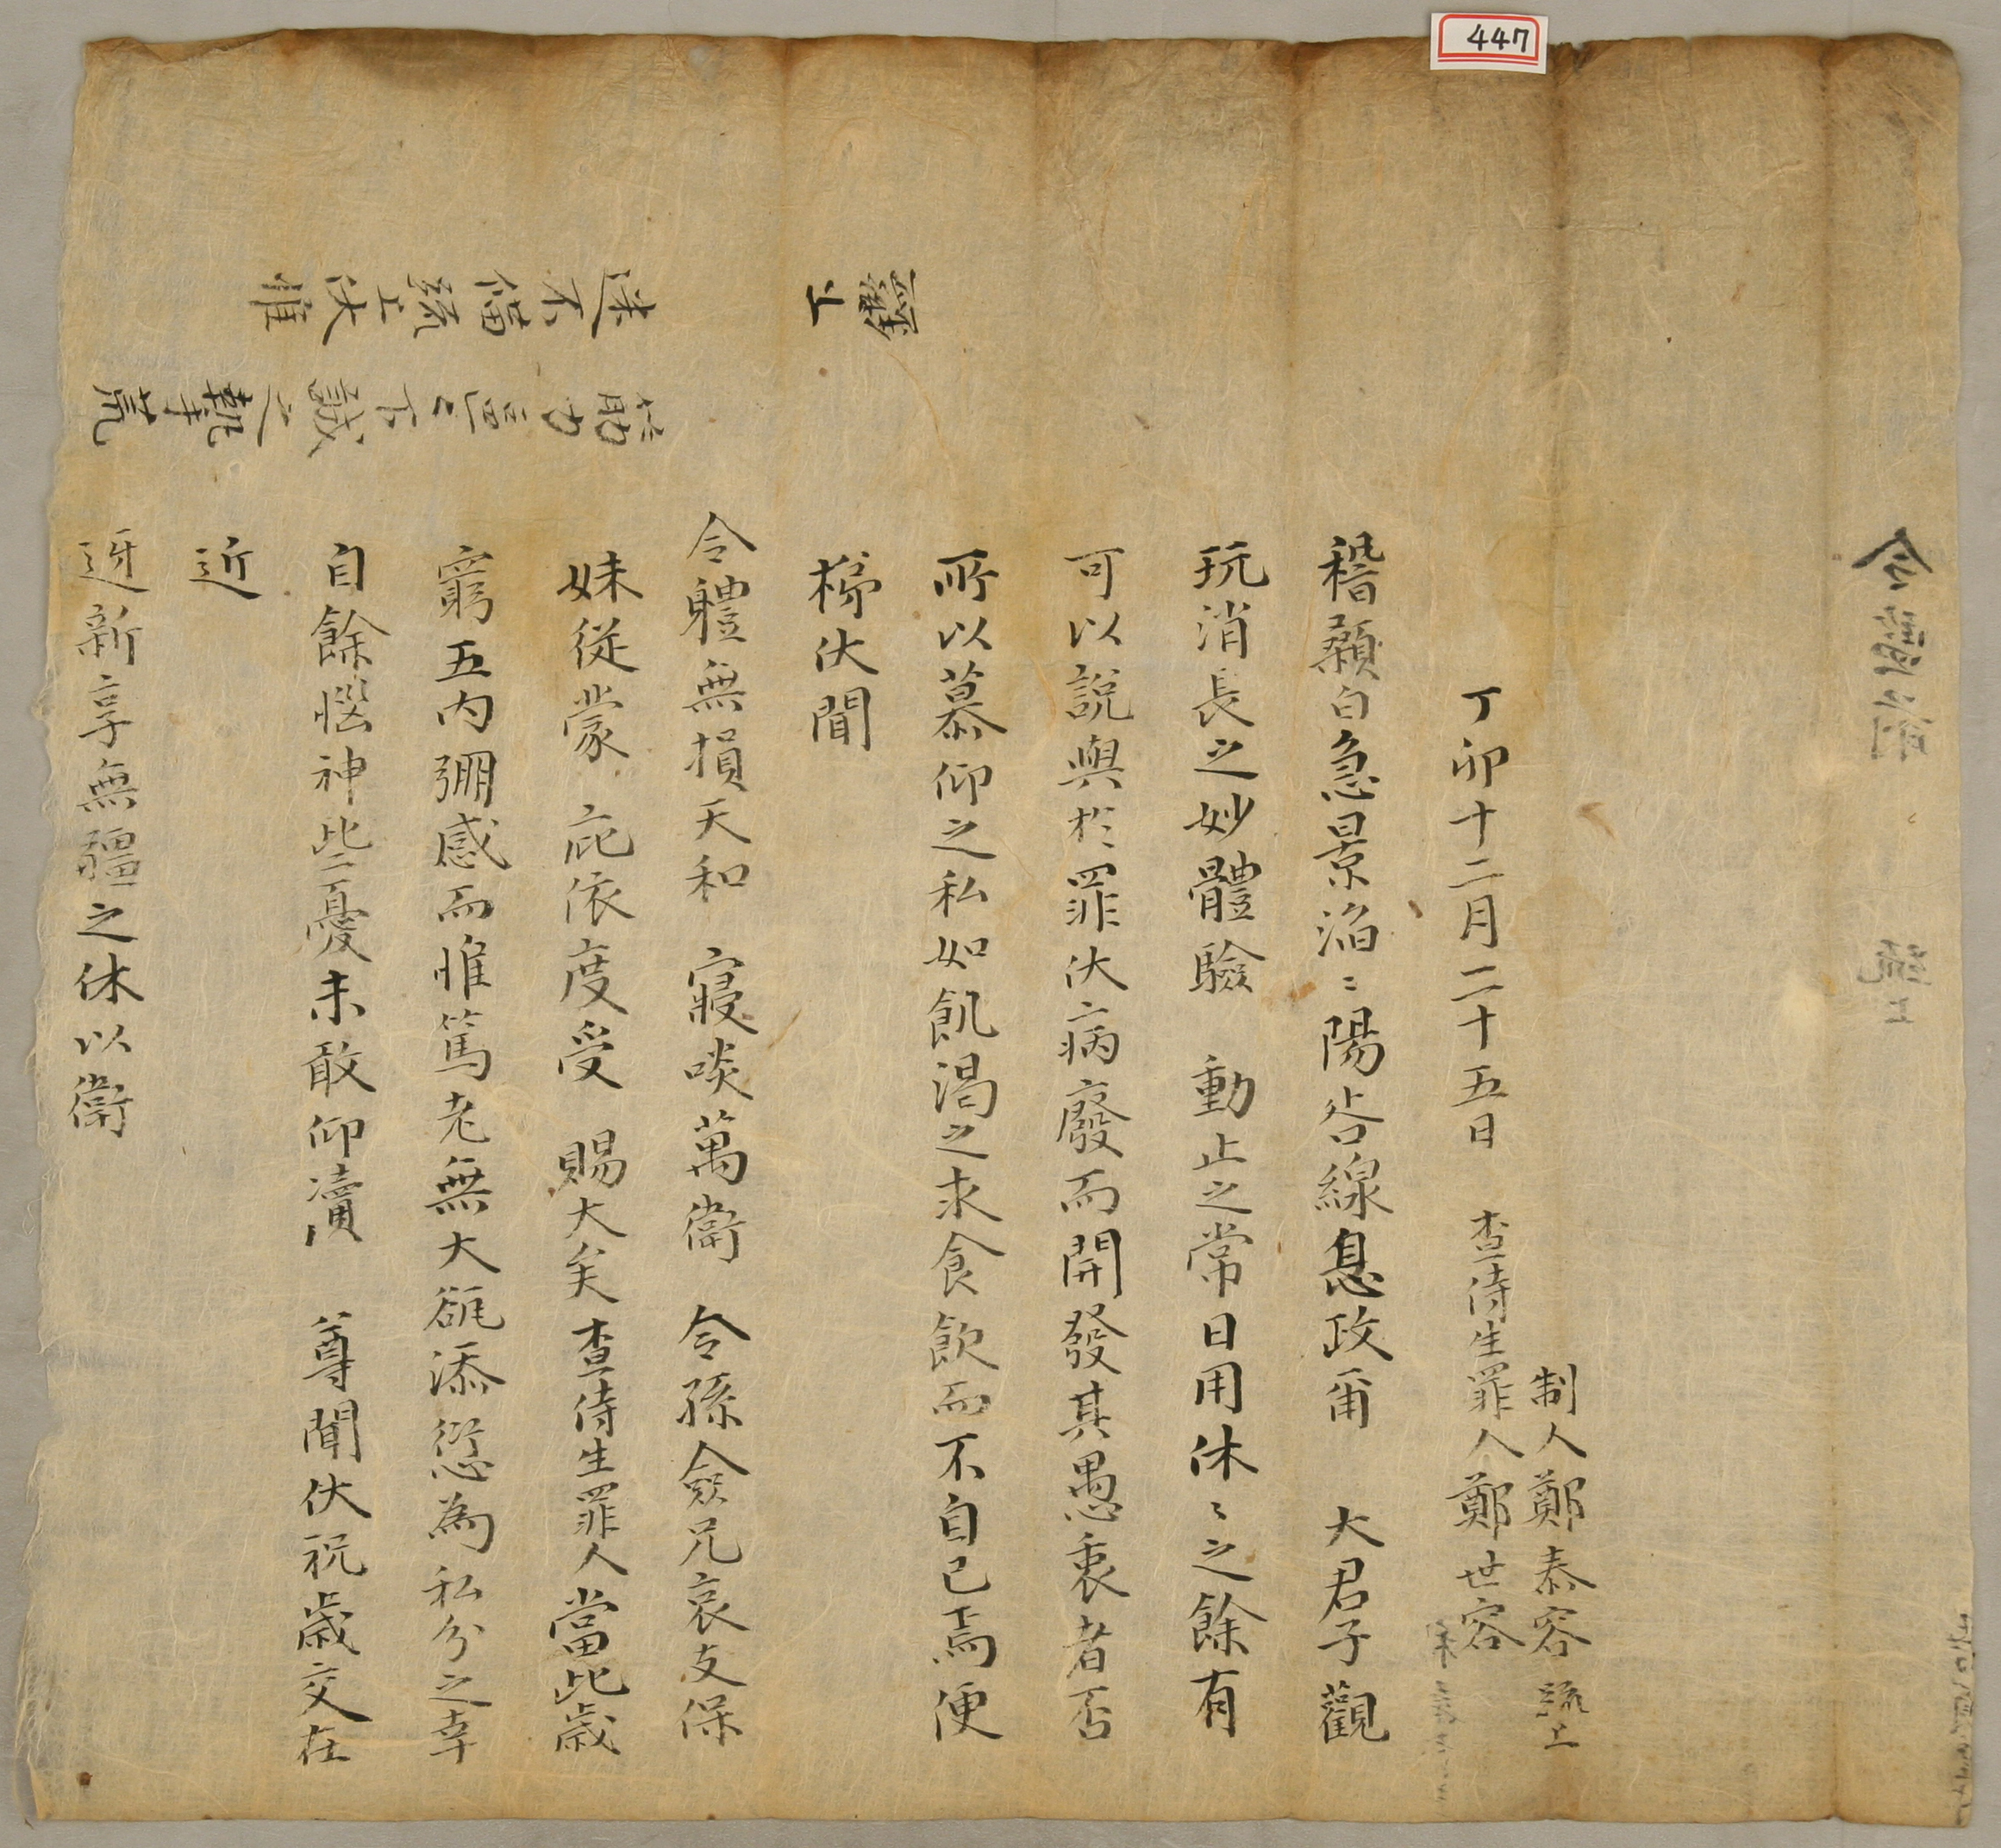 丁卯十二月二十五日 查侍生罪人鄭世容
制人鄭泰容 疏上
稽顙白急景滔〻陽谷線息政甭 大君子觀
玩消長之妙體驗 動止之常日用休〻之餘有
可以說與於罪伏病廢而開發其愚衷者否
所以慕仰之私如飢渴之求食飮而不自已焉便
梯伏聞
令軆無損天和 寢啖萬衛 令孫僉兄哀支保
妹從蒙 庇依度受 賜大矣查侍生罪人當此歲
窮五內弸感而惟篤老無大添愆為私分之幸
自餘惱神些憂未敢仰瀆 尊聞伏祝歲交在
近
迓新享無疆之休以衛
於助力區〻下誠之執荒
迷不備疏上伏惟
鑒上
447